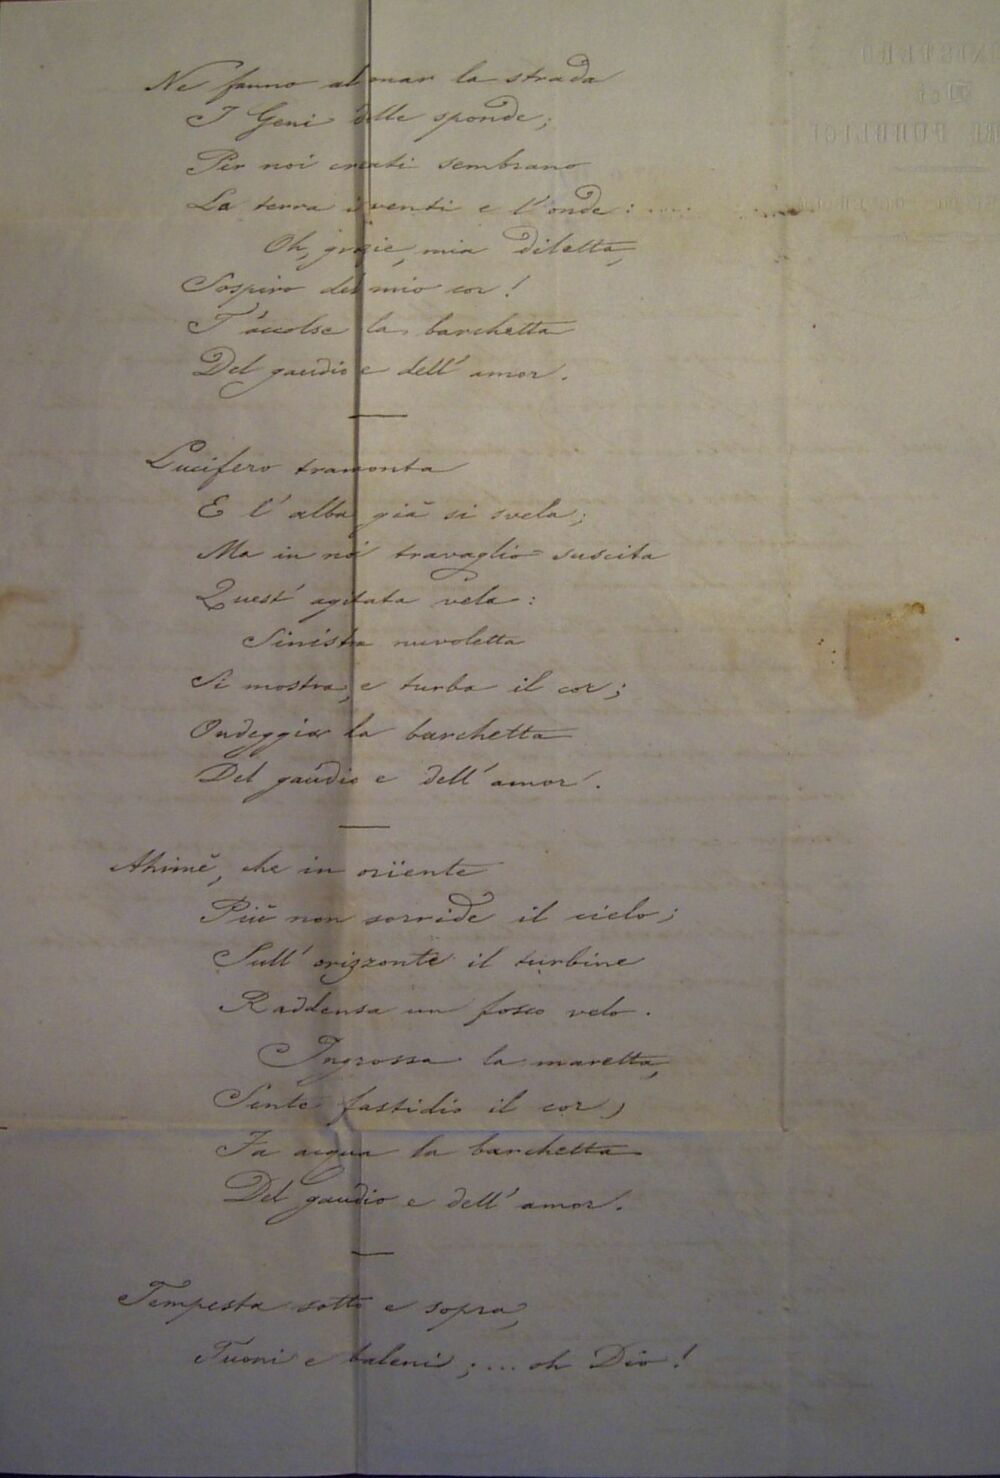 Ne fanno al mar la strada
I Geni delle sponde;
Per noi creati sembrano
La terra i venti e l'onde: ....
Oh, grazie, mia diletta,
Sospiro del mio cor!
T'accolse la barchetta
Del gaudio e dell'amor.
Lucifero tramonta
E l'alba già si svela;
Ma in noi travaglio suscita
Quest'agitata vela:
Sinistra nuvoletta
Si mostra, e turba il cor;
Ondeggia la barchetta
Del gaudio e dell'amor.
Ahimè, che in orïente
Più non sorride il cielo;
Sull'orizzonte il turbine
Raddensa un fosco velo.
Ingrossa la maretta,
Sente fastidio il cor,
Fa acqua la barchetta
Del gaudio e dell'amor.
Tempesta sotto e sopra,
Tuoni e baleni; ... oh Dio!